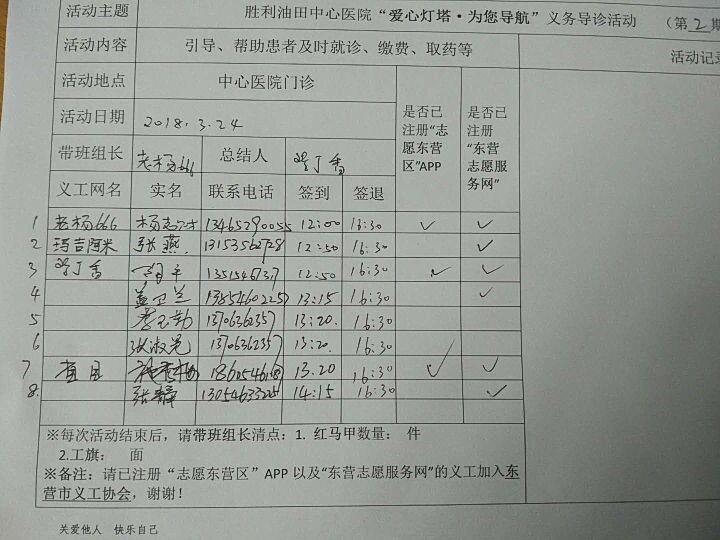 活动主题 胜利油田中心医院“爱心灯塔·为您导航”义务导诊活动 （第2期
活动内容 引导、帮助患者及时就诊、缴费、取药等 活动记录
活动地点 中心医院门诊
活动日期 2018.3.24 是否已注册“志愿东营区”APP 是否已注册“东营志愿服务网”
带班组长 老杨666 总结人 紫丁香
义工网名 实名 联系电话 签到 签退
1 老杨666 杨志才 13465290055 12:00 16:30 ✓ ✓
2 玛吉阿米 张燕 13153562728 12:50 16:30 ✓
3 紫丁香 12:50 16:30 ✓ ✓
4 盖卫兰 13554602257 13:15 16:30 ✓
5 李玉勤 13706362357 13:20. 16:30
6 张淑芝 13706362357 13:20. 16:30
7 13.20 16:30 ✓ ✓
8. 张静 14:15 16:30 ✓
※每次活动结束后，请带班组长清点：1. 红马甲数量： 件
2.工旗： 面
※备注：请已注册“志愿东营区”APP 以及“东营志愿服务网”的义工加入东
营市义工协会，谢谢！
关爱他人 快乐自己